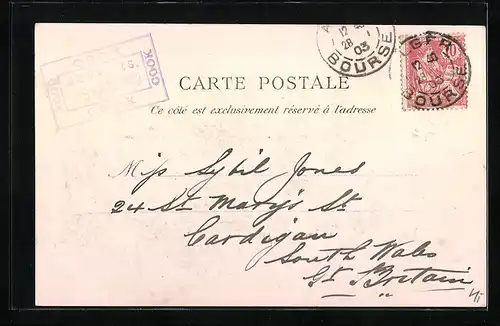 COOK
12
28 - 1
03
BOURSE
GER
10
BOURSE
CARTE POSTALE
Ce côté est exclusivement réservé à l'adresse
Miss Sybil Jones
24 St Mary's St
Cardigan
South Wales
Gt Britain